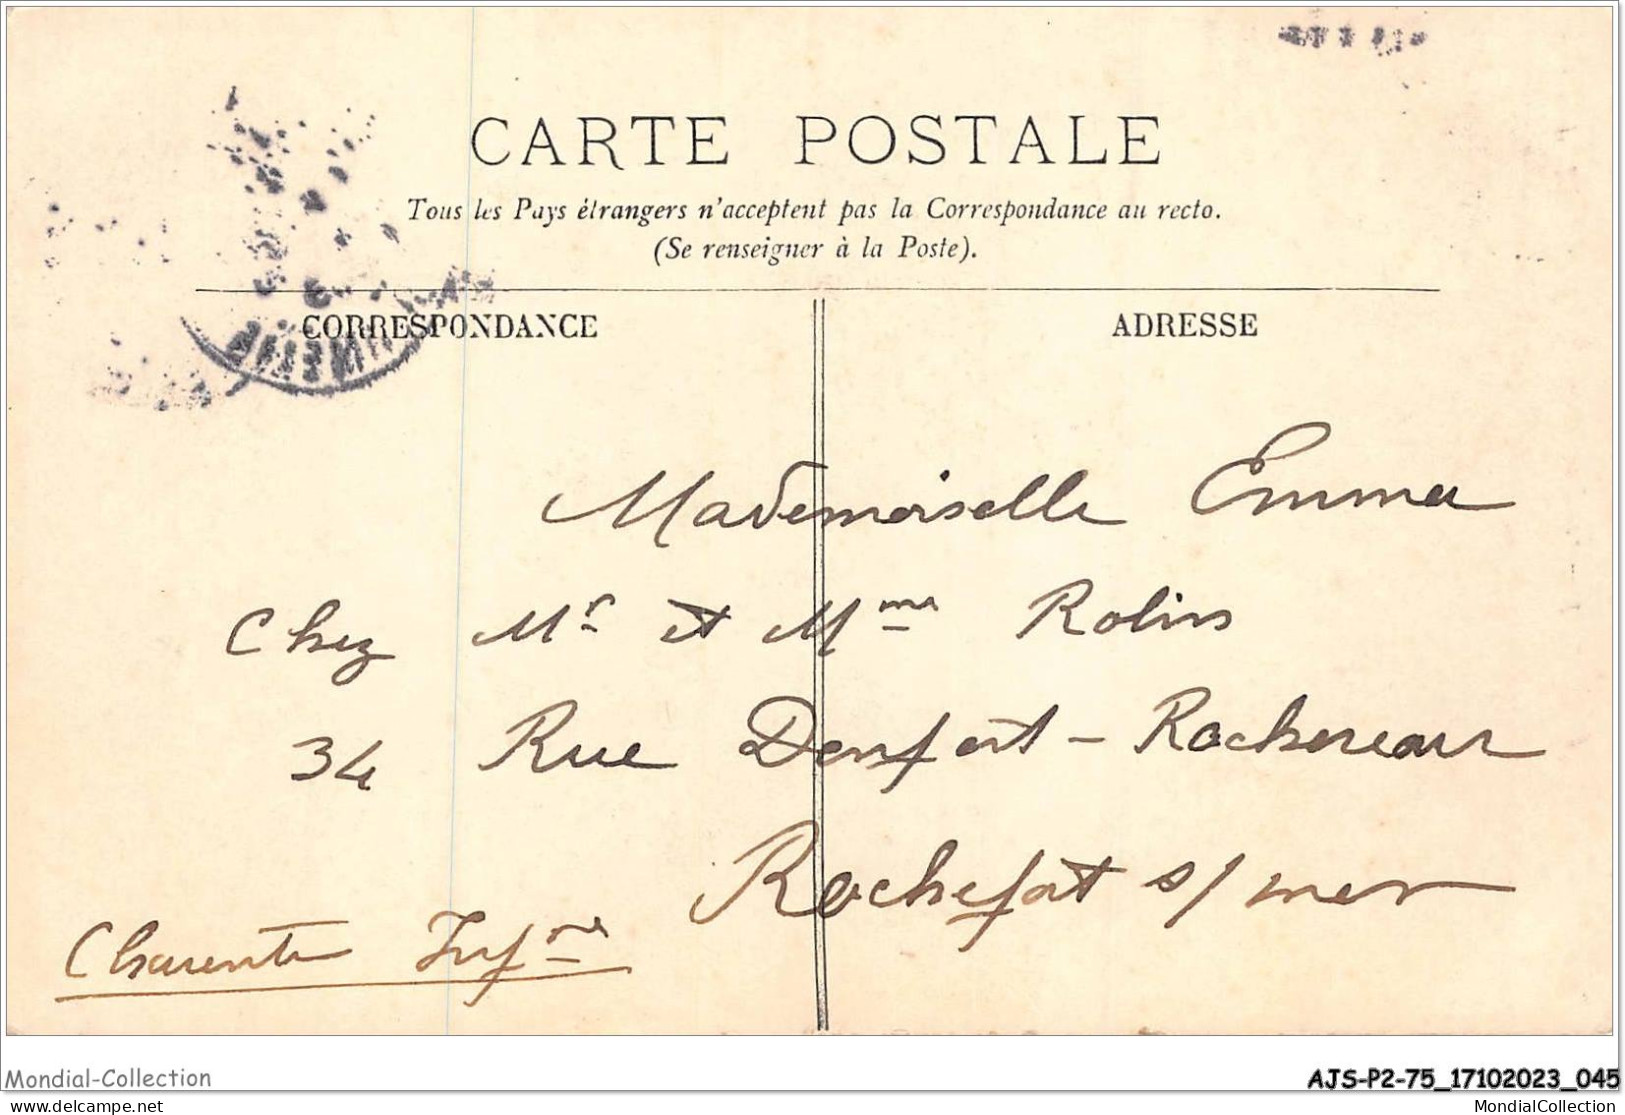 CARTE POSTALE
Tous les Pays étrangers n'acceptent pas la Correspondance au recto.
(Se renseigner à la Poste).
CORRESPONDANCE
ADRESSE
Mademoiselle Emma
Chez Mr et Mme Robins
34 Rue Denfert-Rochereau
Rochefort s/ mer
Charente Infre
Mondial-Collection
AJS-P2-75_17102023_045
www.delcampe.net
MondialCollection